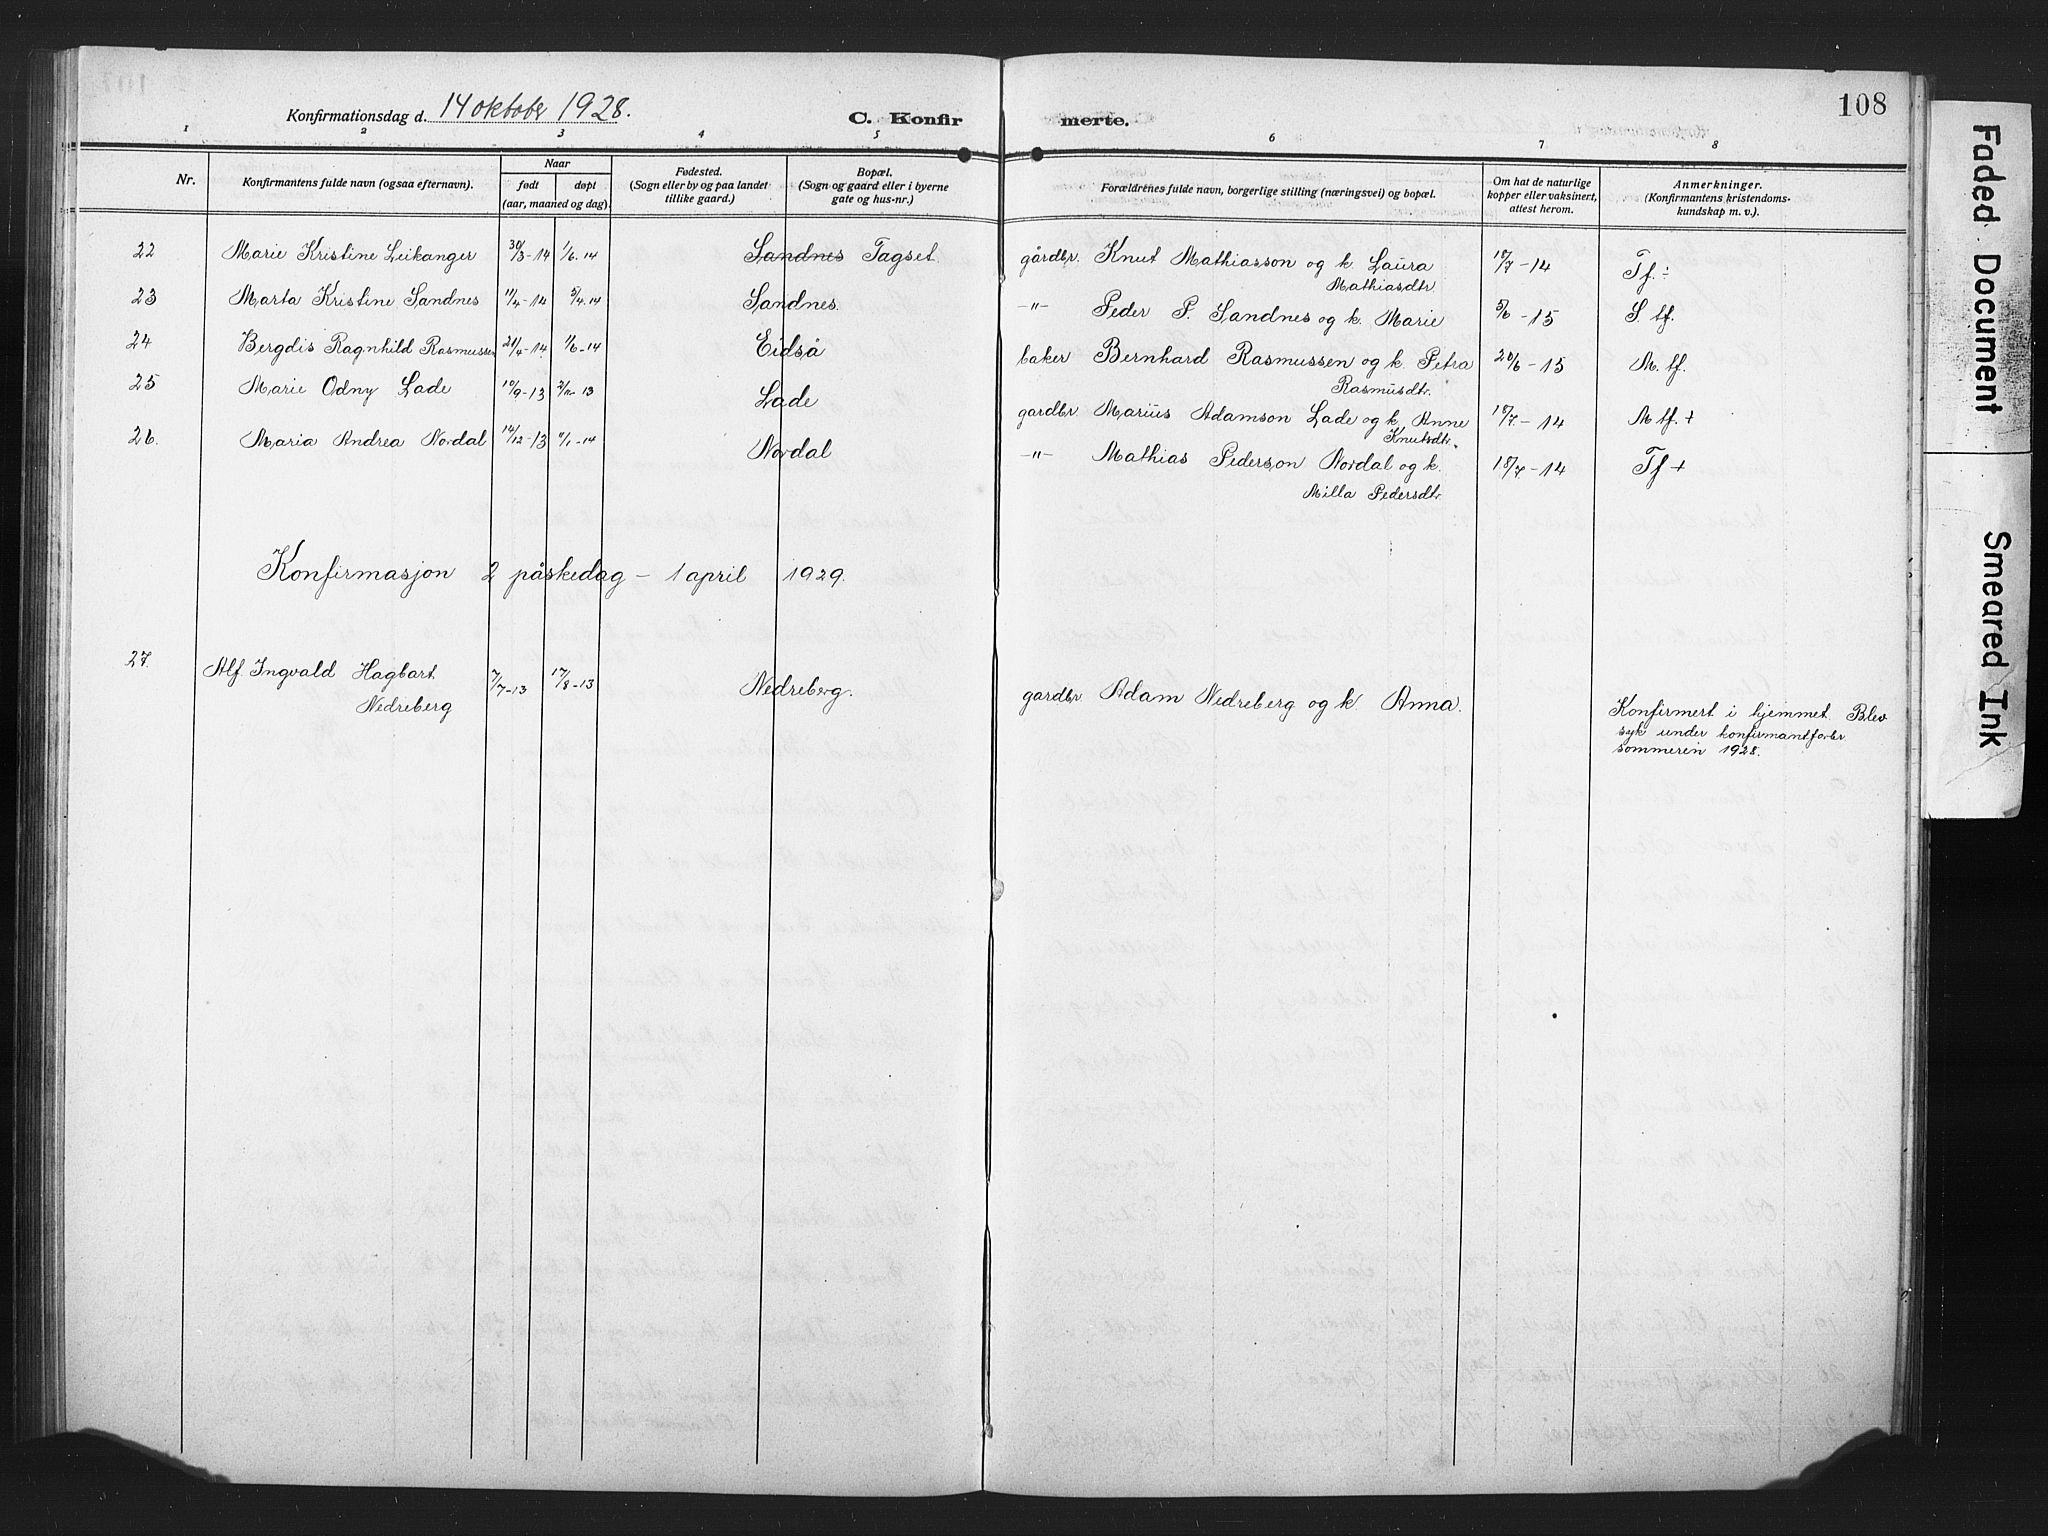 Konfirmationsdag d. 14 oktober 1928.
C. Konfirmerte.
108
1 2 3 4 5 6 7 8
Nr.
Konfirmantens fulde navn (ogsaa efternavn).
Naar
født døpt
(aar, maaned og dag).
Fødested.
(Sogn eller by og paa landet
tillike gaard.)
Bopæl.
(Sogn og gaard eller i byerne
gate og hus-nr.)
Forældrenes fulde navn, borgerlige stilling (næringsvei) og bopæl.
Om hat de naturlige
kopper eller vaksinert,
attest herom.
Anmerkninger.
(Konfirmantens kristendoms-
kundskap m. v.)
22 Marie Kristine Leikanger 30/3-14 1/6.14 Sandnes Tagset. gårdbr. Knut Mathiasson og k. Laura 18/7-14 Tf. ÷
Mathiasdtr
23 Marta Kristine Sandnes 11/4-14 5/4.14 Sandnes. -"- Peder P. Sandnes og k. Marie 5/6-15 S tf.
24 Bergdis Ragnhild Rasmussen 21/4-14 1/6-14 Eidså baker Bernhard Rasmussen og k. Petra 20/6-15 M. tf.
Rasmusdtr.
25 Marie Odny Lade 10/9-13 2/11-13 Lade gardbr Marius Adamson Lade og k. Anne 18/7-14 M tf. +
Knutsdtr.
26. Maria Andrea Nordal 14/12-13 11/1-14 Nordal -"- Mathias Pederson Nordal og k. 18/7-14 Tf +
Milla Pedersdtr.
Konfirmasjon 2 påskedag – 1 april 1929.
27. Alf Ingvald Hagbart 7/7-13 17/8-13 Nedreberg. gardbr Adam Nedreberg og k. Anna.
Nedreberg
Konfirmert i hjemmet. Blev
syk under konfirmantforbr
sommeren 1928.
Faded Document
Smeared Ink